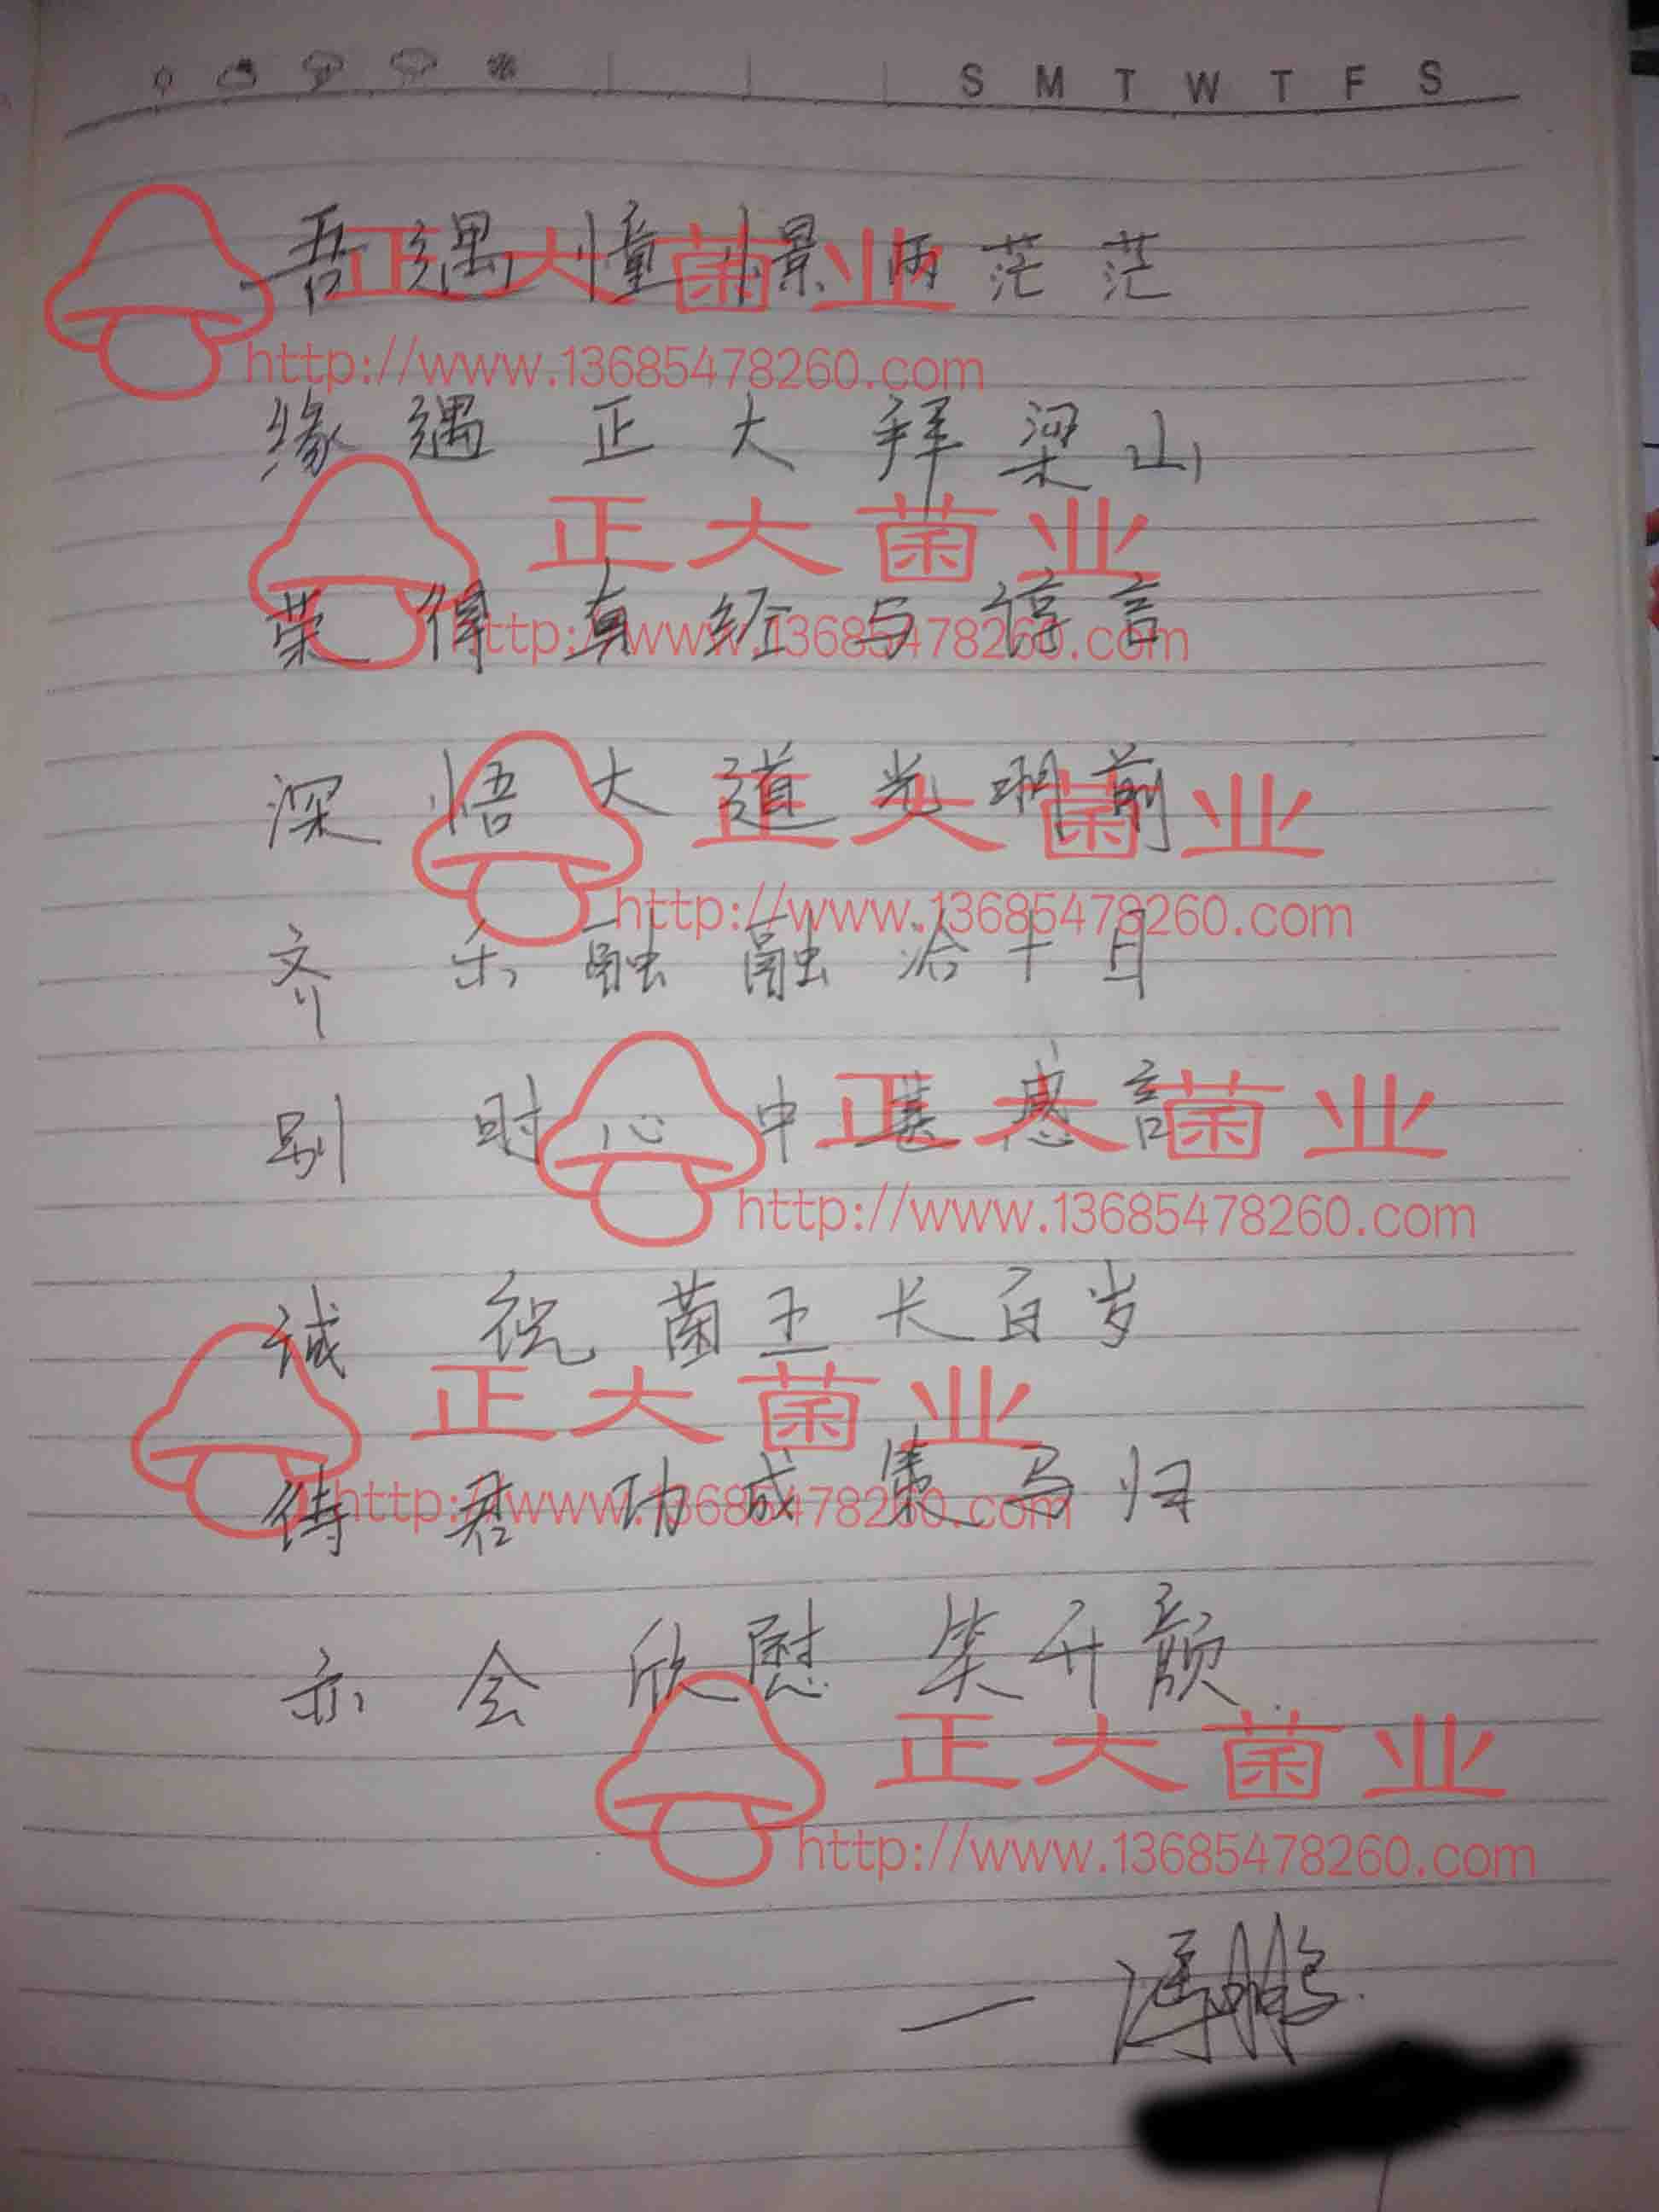 S M T W T F S
吾遇憧憬两茫茫
正大菌业
http://www.13685478260.com
缘遇正大拜梁山
正大菌业
荣得真经与谆言
http://www.13685478260.com
深悟大道光明前
正大菌业
http://www.13685478260.com
齐乐融融洽十日
别时心中甚感言
正大菌业
http://www.13685478260.com
诚祝菌王长百岁
正大菌业
待君功成策马归
http://www.13685478260.com
亦会欣慰笑开颜
正大菌业
http://www.13685478260.com
一冯鹏